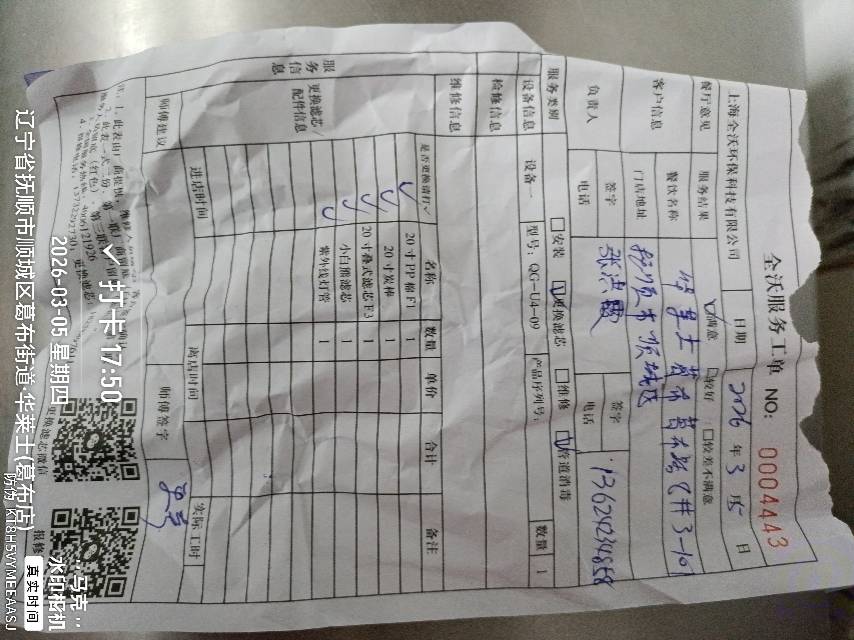 全沃服务工单 NO: 0004443
上海全沃环保科技有限公司 日期 2026 年 3 月 5 日
餐厅意见 服务结果 ☑满意 □较好 □较差不满意
客户信息 餐饮名称 华莱士葛布
门店地址 抚顺市顺城区
负责人 签字 签字
电话 电话 13624234858
服务类别 □安装 ☑更换滤芯 □维修 ☑管道消毒
设备信息 设备一 型号: QG-U4-09 产品序列号: 数量 1
检修信息
维修信息
服务信息
更换滤芯/配件信息
是否更换请打✓ 名称 数量 单价 合计 备注
✓ 20寸PP棉F1 1
✓ 20寸炭棒 1
✓ 20寸叠式滤芯F3 1
✓ 小白熊滤芯 1
✓ 紫外线灯管 1
进店时间 离店时间 实际工时
师傅建议 师傅签字
更换滤芯微信
报修
打卡 17:50
2026-03-05 星期四
辽宁省抚顺市顺城区葛布街道·华莱士(葛布店)
马克
水印相机
真实时间
防伪 KT8H5VYMEEAASJ